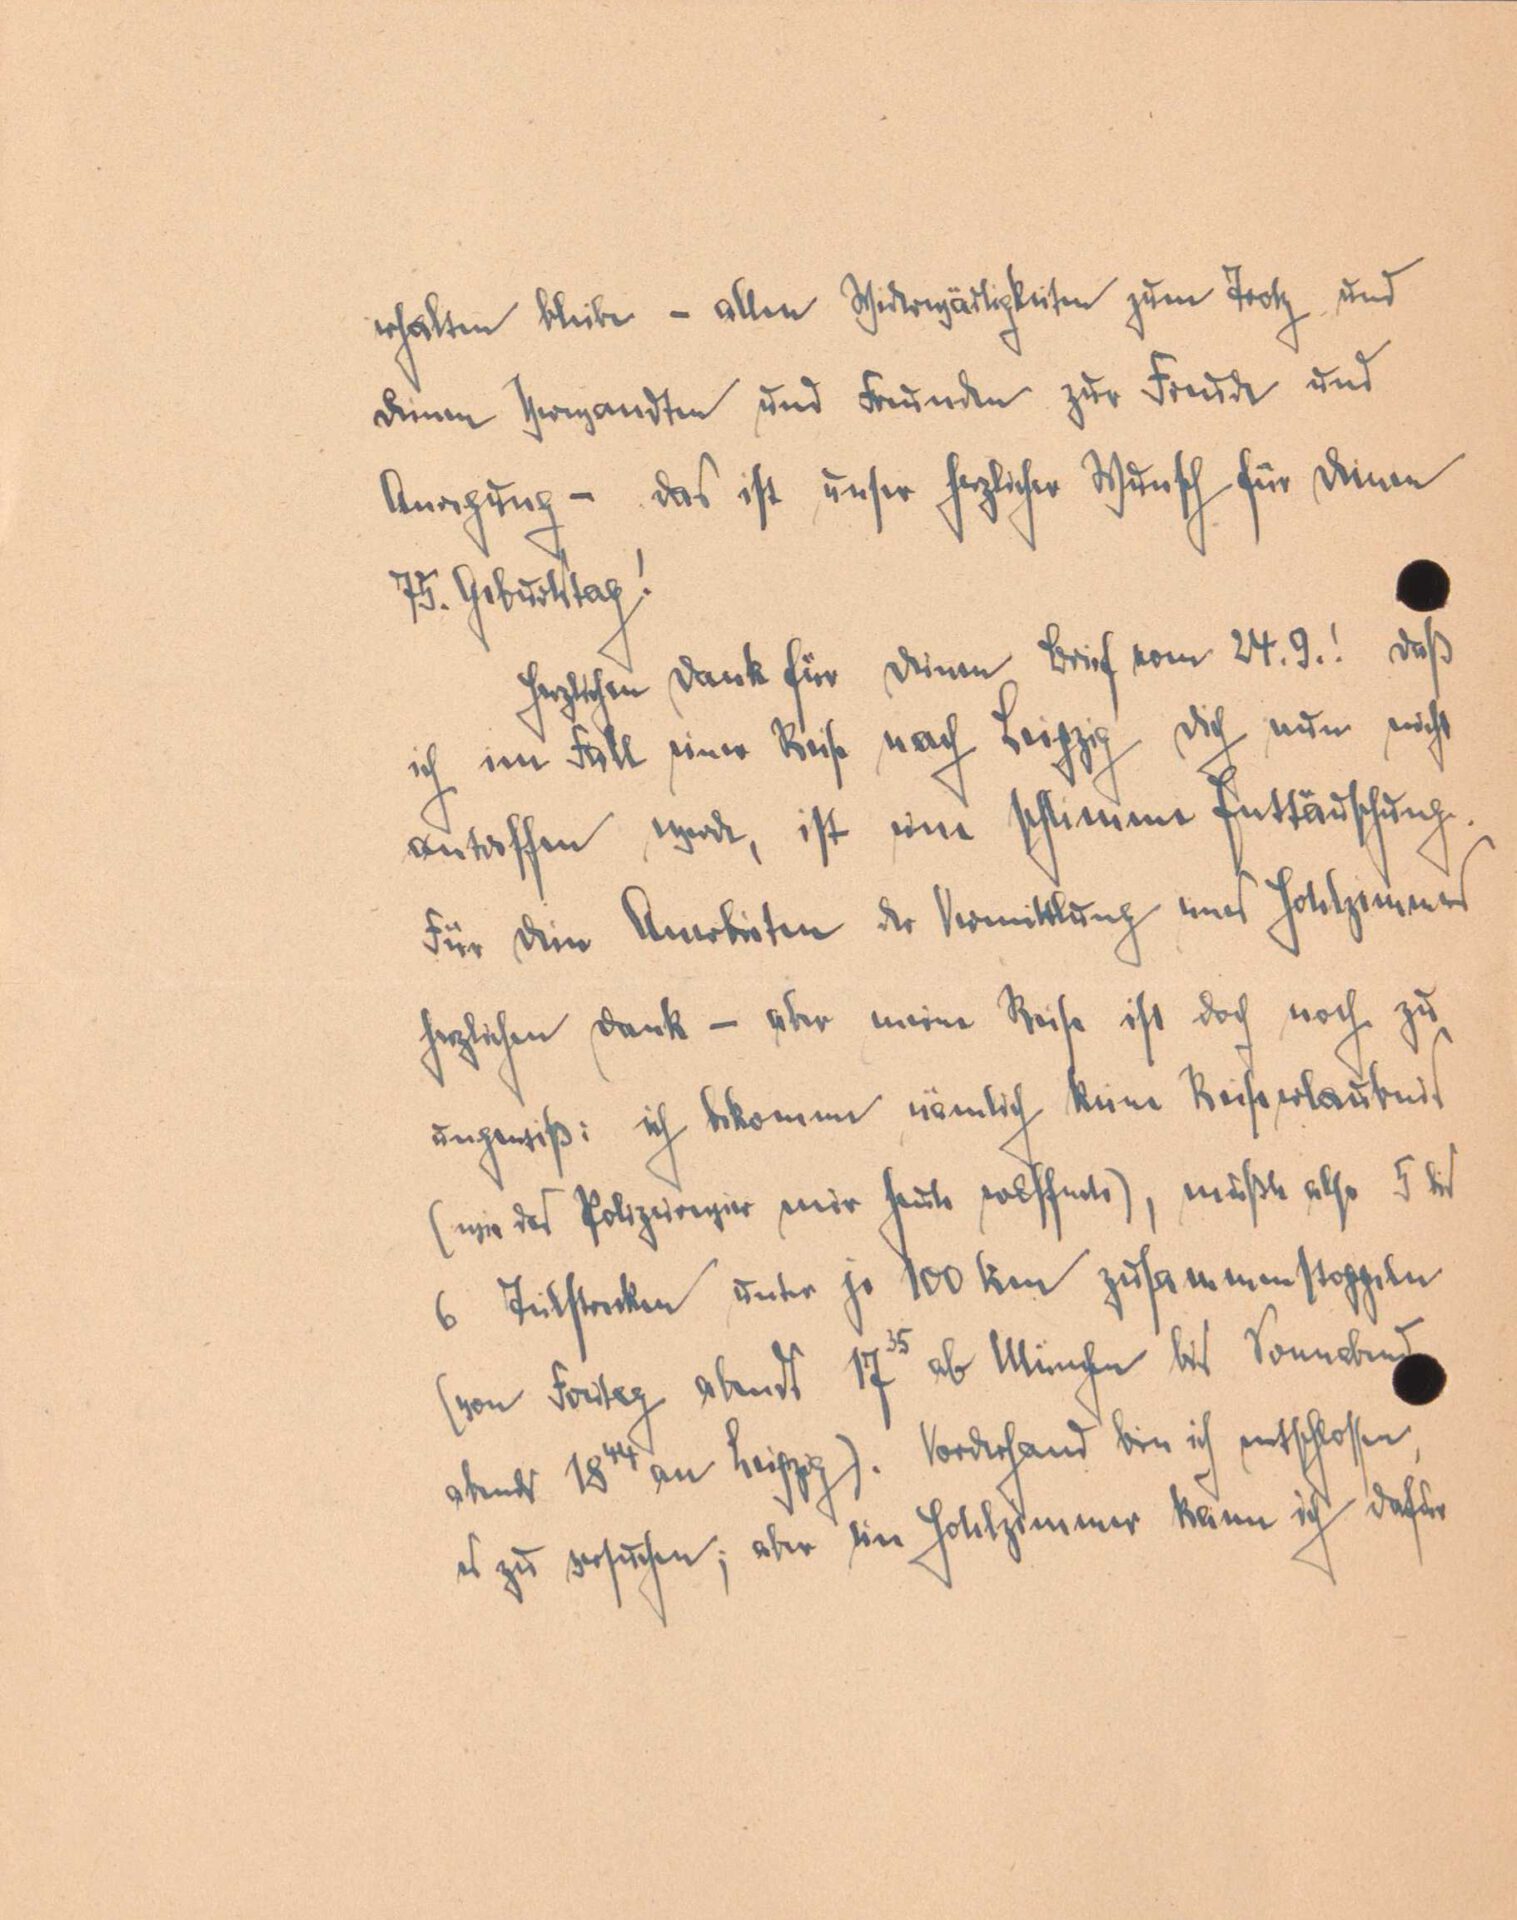 erhalten bleibe – allen Widerwärtigkeiten zum Trotz und
Deinen Verwandten und Freunden zur Freude und
Anregung – das ist unser herzlicher Wunsch für Deinen
75. Geburtstag!
Herzlichen Dank für Deinen Brief vom 24.9.! Daß
ich im Fall einer Reise nach Leipzig Dich nun nicht
antreffen werde, ist eine schlimme Enttäuschung.
Für Dein Anerbieten der Vermittlung eines Hotelzimmers
herzlichen Dank – aber meine Reise ist doch noch zu
ungewiß: ich bekomme nämlich keine Reiseerlaubnis
(wie das Polizeirevier mir heute eröffnete), müßte also 5 bis
6 Teilstrecken unter je 100 km zusammenstoppeln
(von Freitag abends 17³⁵ ab München bis Sonnabend
abends 18⁴⁴ an Leipzig). Vorderhand bin ich entschlossen,
es zu versuchen; aber ein Hotelzimmer kann ich dafür